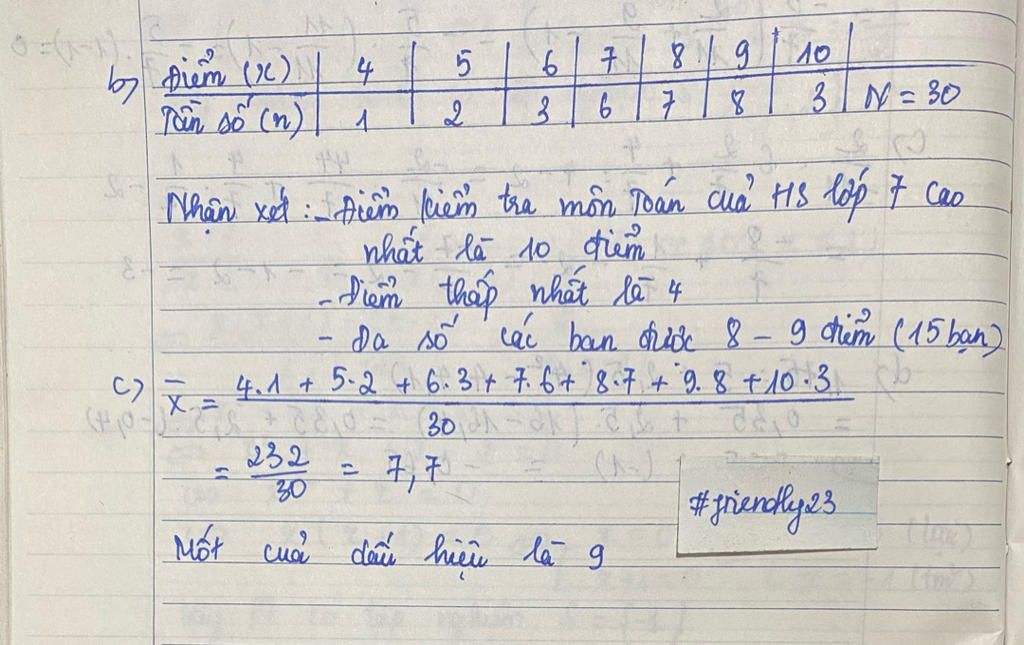 b) Điểm (x) | 4 | 5 | 6 | 7 | 8 | 9 | 10 |
Tần số (n) | 1 | 2 | 3 | 6 | 7 | 8 | 3 | N = 30
Nhận xét : - Điểm kiểm tra môn Toán cuả HS lớp 7 cao
nhất là 10 điểm
- Điểm thấp nhất là 4
- Đa số các bạn được 8 - 9 điểm (15 bạn)
c) x̄ = (4.1 + 5.2 + 6.3 + 7.6 + 8.7 + 9.8 + 10.3) / 30
= 232/30 = 7,7
#friendly23
Mốt cuả dấu hiệu là 9